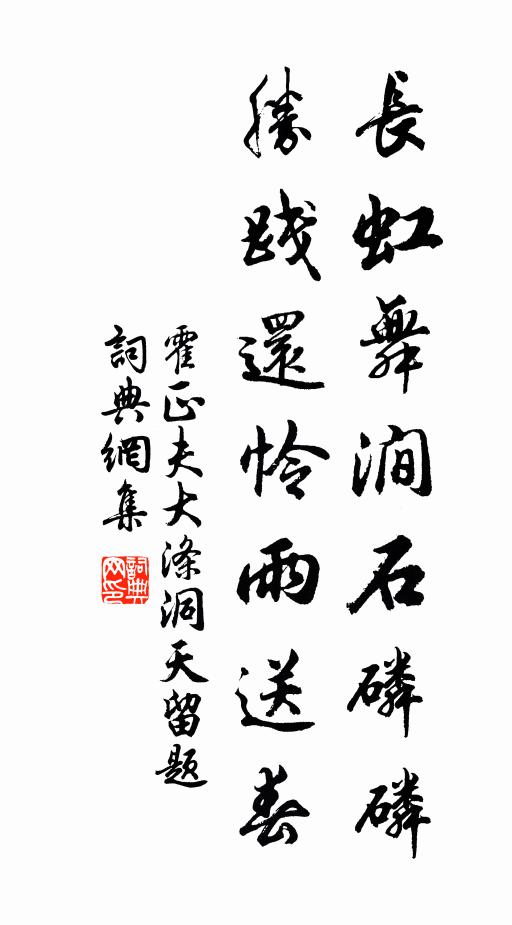 長虹舞澗石磷磷
勝踐還怜雨送春
霍正夫大滌洞天留題
詞典網集
詞典网印